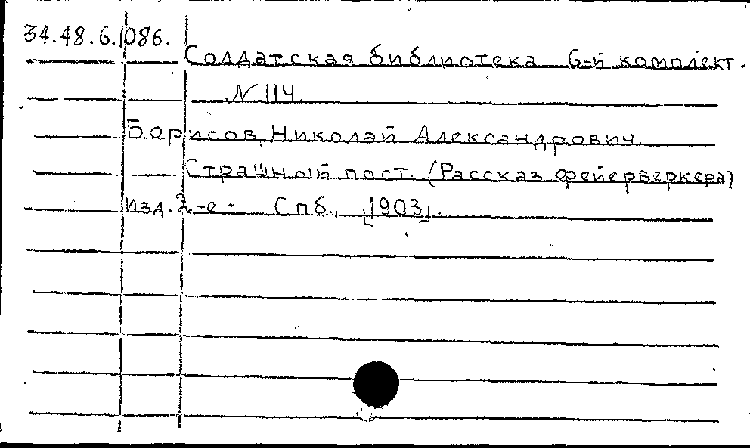 34.48.6.1086.
Солдатская библиотека 6-й комплект.
N 114
Борисов, Николай Александрович
Страшный пост. (Рассказ фейерверкера)
Изд. 2-е. Спб., [1903].